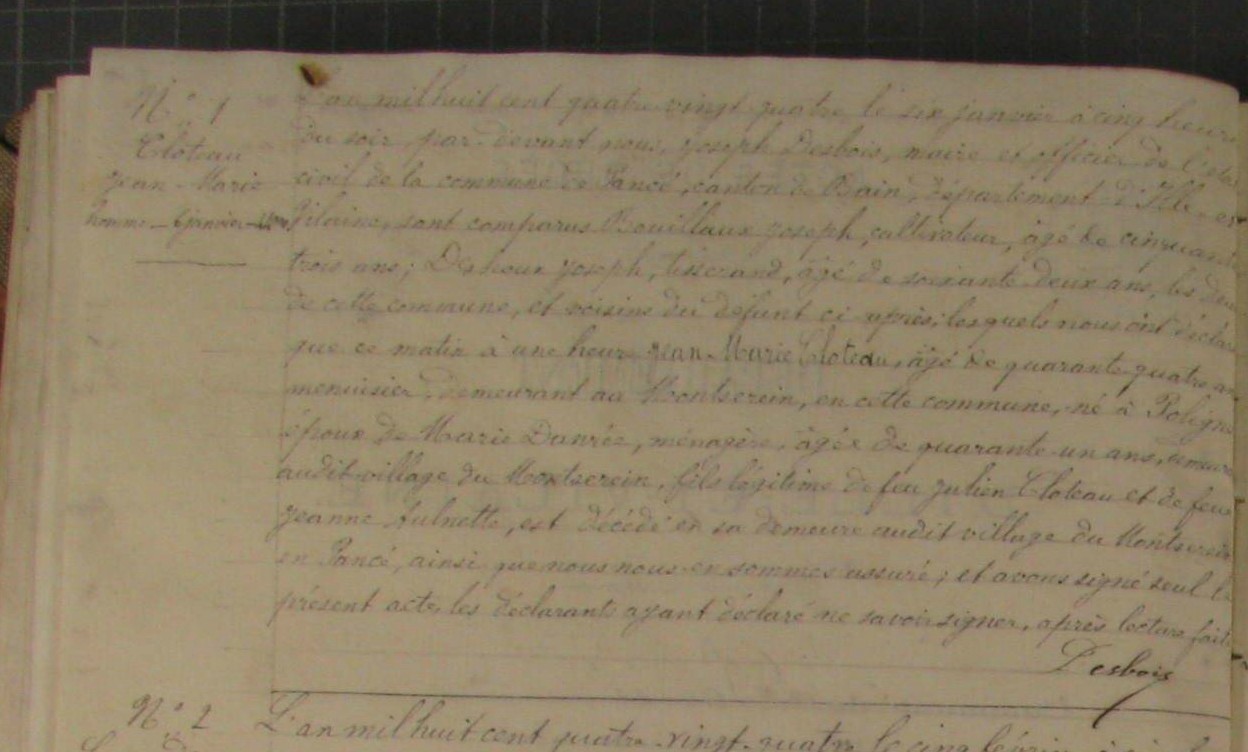 N.° 1
Cloteau
Jean-Marie
homme - 6 janvier -
L'an mil huit cent quatre-vingt-quatre le six janvier à cinq heures
du soir, par-devant nous, Joseph Desbois, maire et officier de l'état
civil de la commune de Pancé, canton de Bain, département d'Ille-et-
Vilaine, sont comparus Bouillaux Joseph, cultivateur, âgé de cinquante
trois ans; Joseph, tisserand, âgé de soixante-deux ans, les deux
de cette commune, et voisins du défunt ci-après; lesquels nous ont déclaré
que ce matin à une heure Jean-Marie Cloteau, âgé de quarante-quatre ans
menuisier, demeurant au Montserein, en cette commune, né à Poligné
époux de Marie Danrée, ménagère, âgée de quarante-un ans, demeurant
audit village du Montserein, fils légitime de feu Julien Cloteau et de feue
Jeanne Aulnette, est décédé en sa demeure audit village du Montserein
en Pancé, ainsi que nous nous en sommes assuré; et avons signé seul le
présent acte, les déclarants ayant déclaré ne savoir signer, après lecture faite
Desbois
N.° 2
L'an mil huit cent quatre-vingt-quatre le cinq février